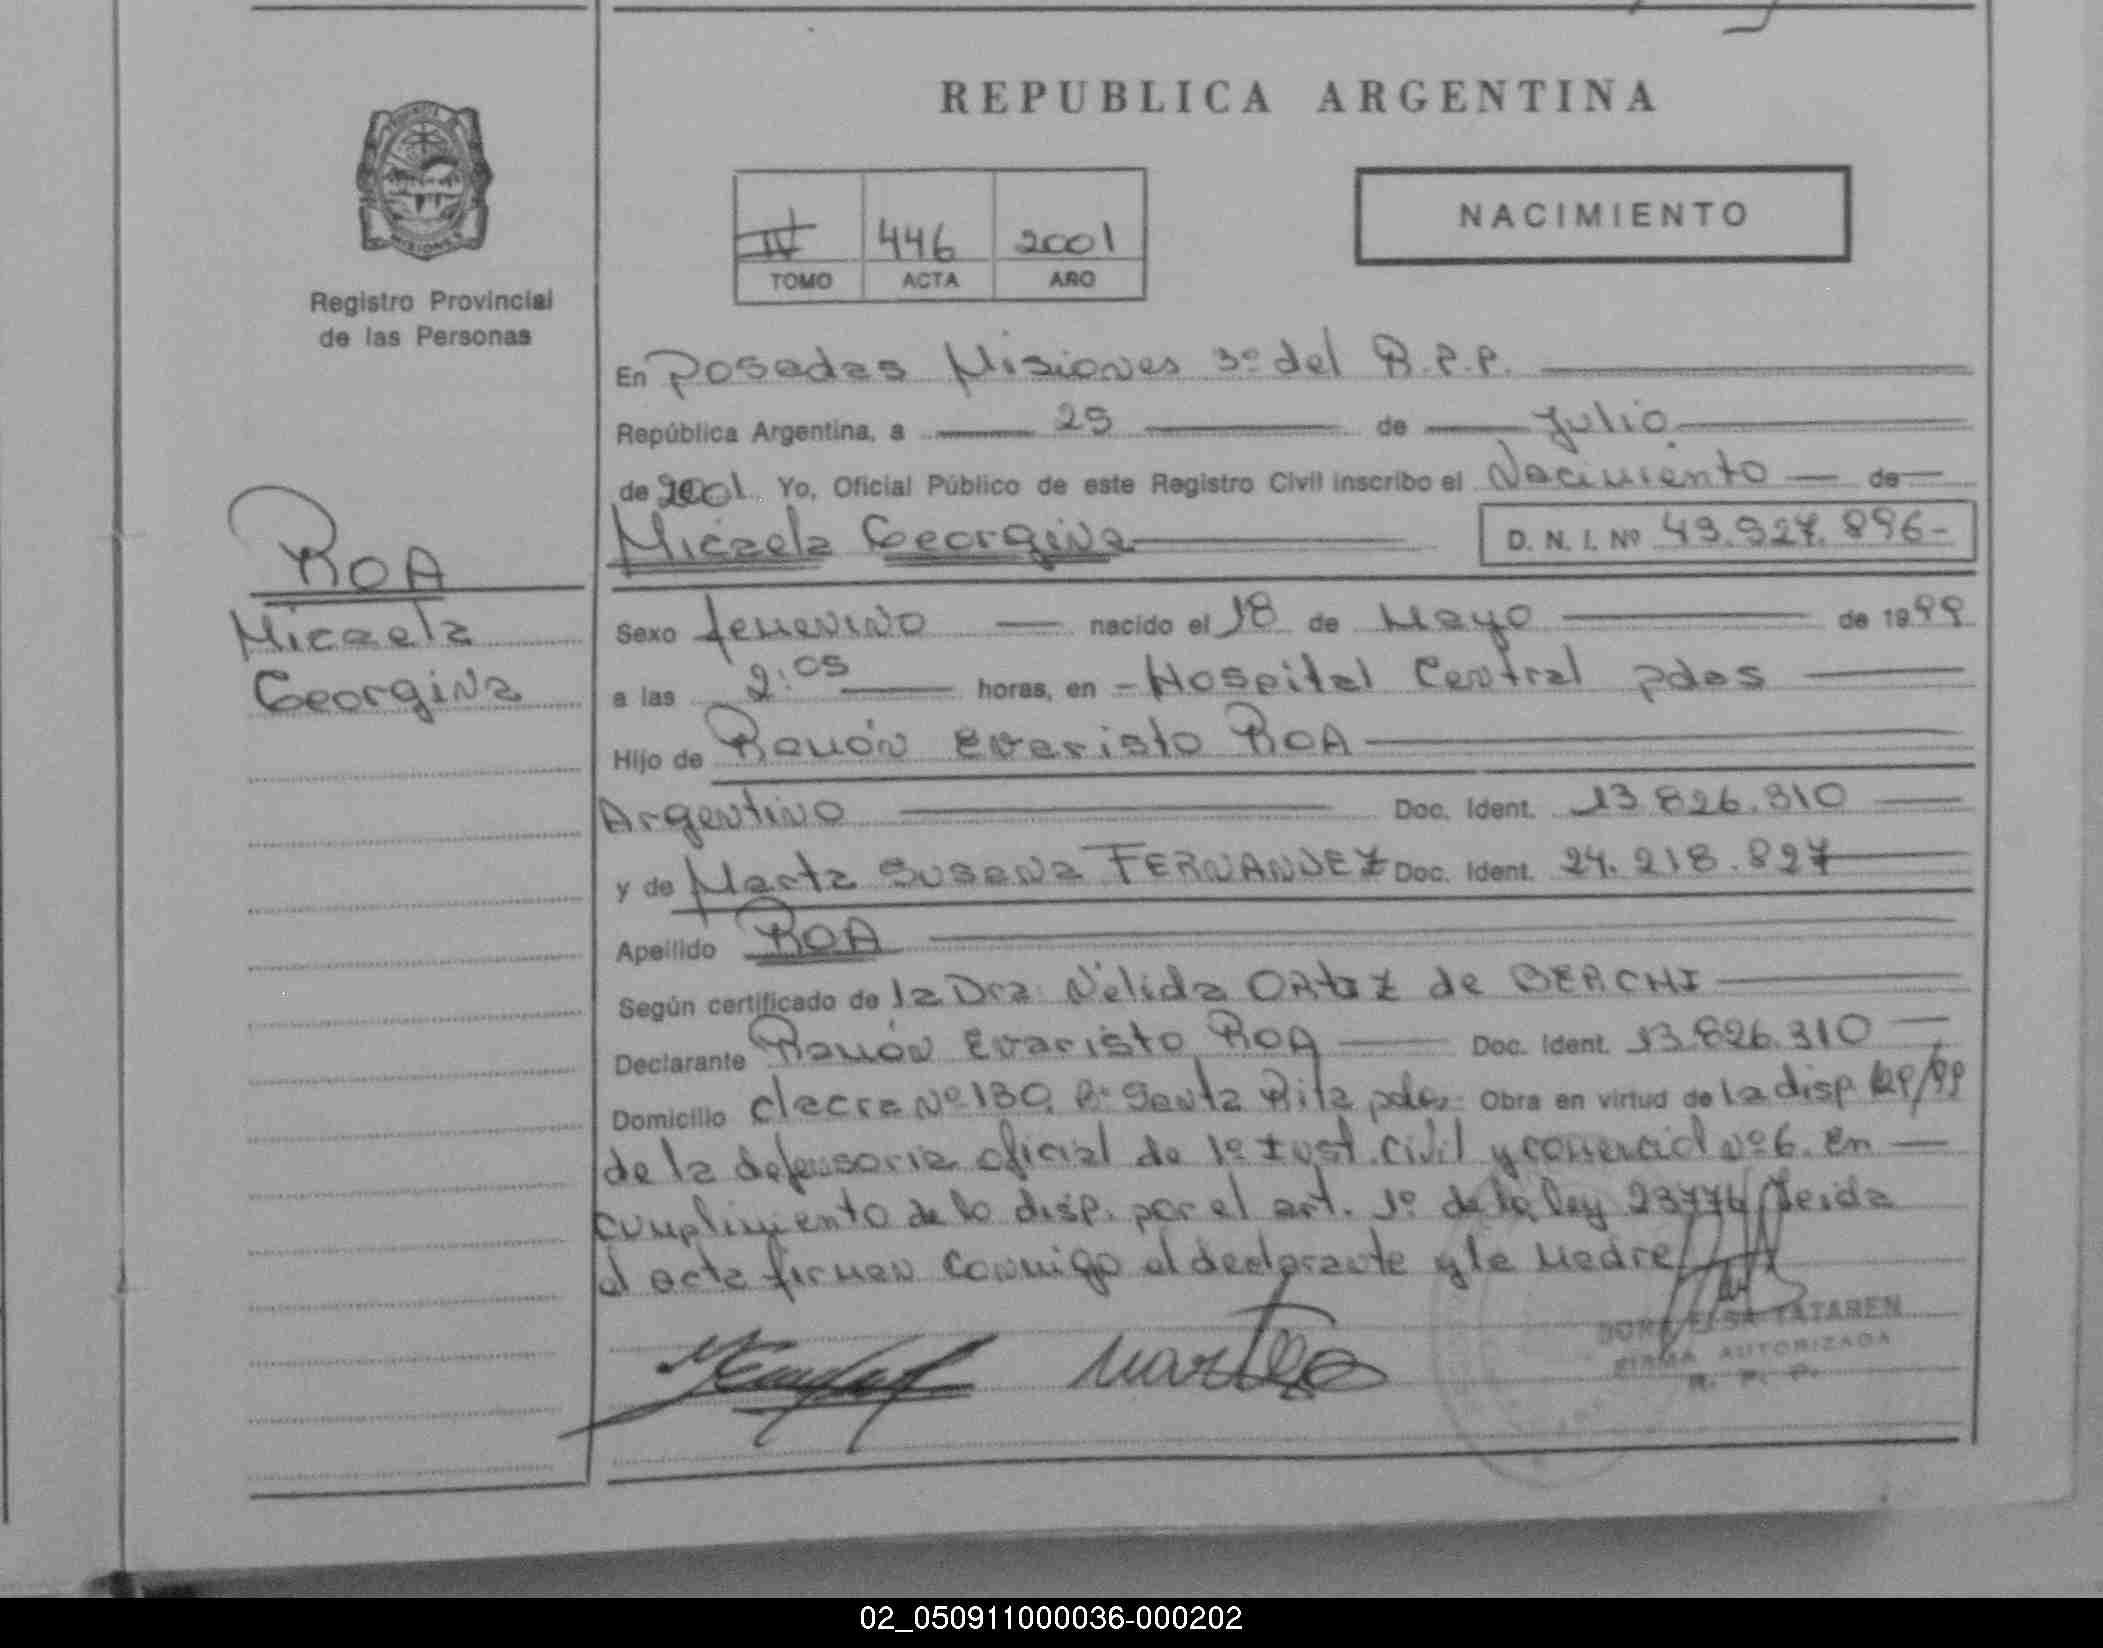 REPUBLICA ARGENTINA
NACIMIENTO
IV 446 2001
TOMO ACTA AÑO
Registro Provincial
de las Personas
En Posadas Misiones 3º del R.P.P.
República Argentina, a 25 de Julio
de 2001. Yo, Oficial Público de este Registro Civil inscribo el Nacimiento de
Micaela Georgina D. N. I. Nº 43.927.896-
ROA
Micaela
Georgina
Sexo femenino nacido el 18 de Mayo de 1999
a las 2:05 horas, en - Hospital Central pdas
Hijo de Ramón Evaristo ROA
Argentino Doc. Ident. 13.826.310
y de Marta Susana FERNANDEZ Doc. Ident. 24.218.827
Apellido ROA
Según certificado de la Dra. Nélida ORtiz de BEACHI
Declarante Ramón Evaristo ROA Doc. Ident. 13.826.310
Domicilio chacra Nº 130. Bº Santa Rita pdas. Obra en virtud de la disp. 129/99
de la defensoria oficial de 1º Inst. Civil y comercial Nº 6. En
cumplimiento de lo disp. por el art. 1º de la ley 23776 Leida
el acta firman conmigo el declarante y la Madre
DORA ELSA TATAREN
FIRMA AUTORIZADA
R. P. P.
02_050911000036-000202